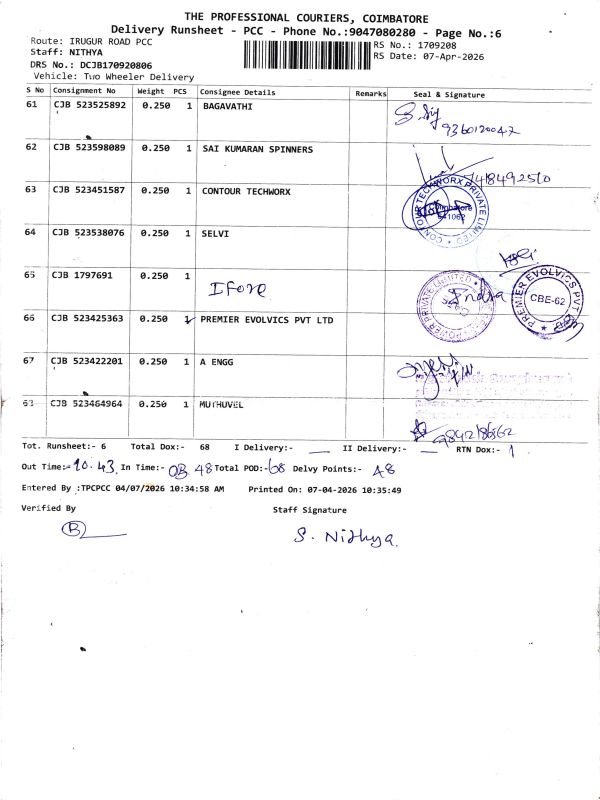 THE PROFESSIONAL COURIERS, COIMBATORE
Delivery Runsheet - PCC - Phone No.:9047080280 - Page No.:6
Route: IRUGUR ROAD PCC
RS No.: 1709208
Staff: NITHYA
RS Date: 07-Apr-2026
DRS No.: DCJB170920806
Vehicle: Two Wheeler Delivery
S No Consignment No Weight PCS Consignee Details Remarks Seal & Signature
61 CJB 523525892 0.250 1 BAGAVATHI
9360120047
62 CJB 523598089 0.250 1 SAI KUMARAN SPINNERS
7418492510
63 CJB 523451587 0.250 1 CONTOUR TECHWORX
CONTOUR TECHWORX PRIVATE LIMITED
64 CJB 523538076 0.250 1 SELVI
65 CJB 1797691 0.250 1 Ifore
Indra
66 CJB 523425363 0.250 1 PREMIER EVOLVICS PVT LTD
PREMIER EVOLVICS PVT LTD
CBE-62
67 CJB 523422201 0.250 1 A ENGG
63 CJB 523464964 0.250 1 MUTHUVEL
Tot. Runsheet:- 6 Total Dox:- 68 I Delivery:- II Delivery:- RTN Dox:- 1
Out Time:- 10.43 In Time:- 03.48 Total POD:- 68 Delvy Points:- 48
Entered By :TPCPCC 04/07/2026 10:34:58 AM Printed On: 07-04-2026 10:35:49
Verified By Staff Signature
B S. Nithya